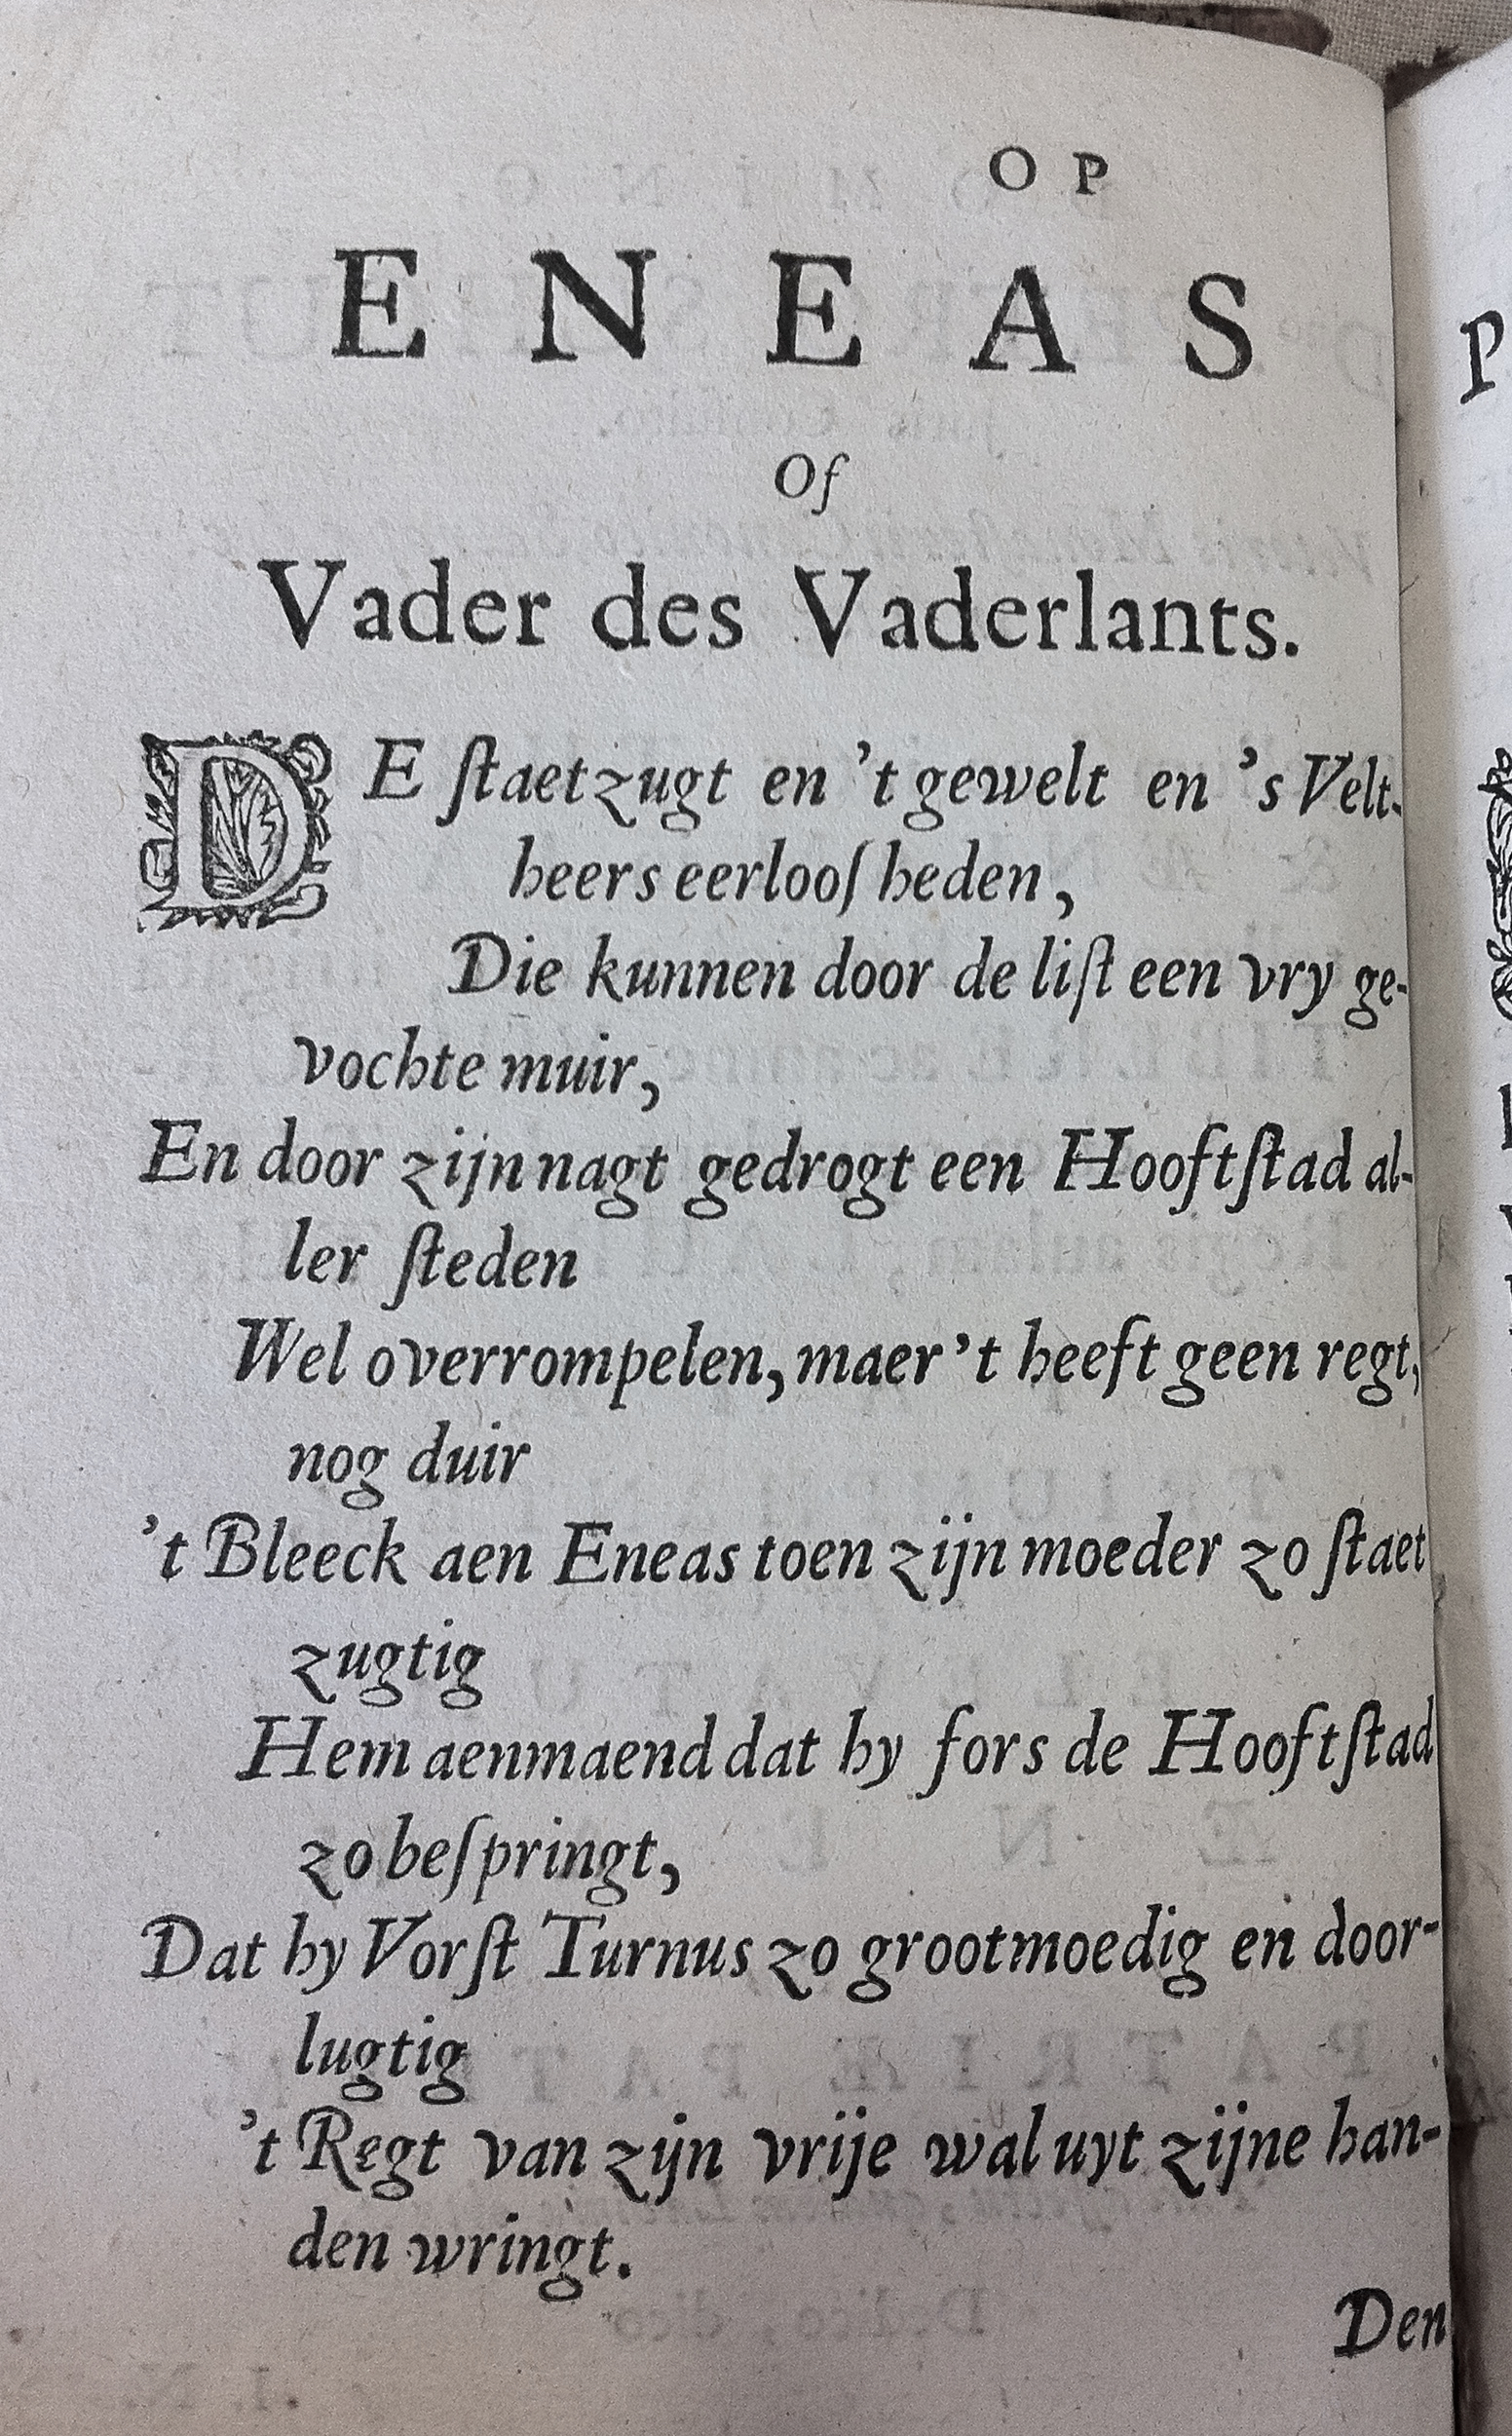 OP
ENEAS
Of
Vader des Vaderlants.
DE ſtaetzugt en 't gewelt en 's Velt-
heers eerlooſheden,
Die kunnen door de liſt een vry ge-
vochte muir,
En door zijn nagt gedrogt een Hooftſtad al-
ler ſteden
Wel overrompelen, maer 't heeft geen regt,
nog duir
't Bleeck aen Eneas toen zijn moeder zo ſtaet
zugtig
Hem aenmaend dat hy fors de Hooftſtad
zo beſpringt,
Dat hy Vorſt Turnus zo grootmoedig en door-
lugtig
't Regt van zijn vrije wal uyt zijne han-
den wringt.
Den
P